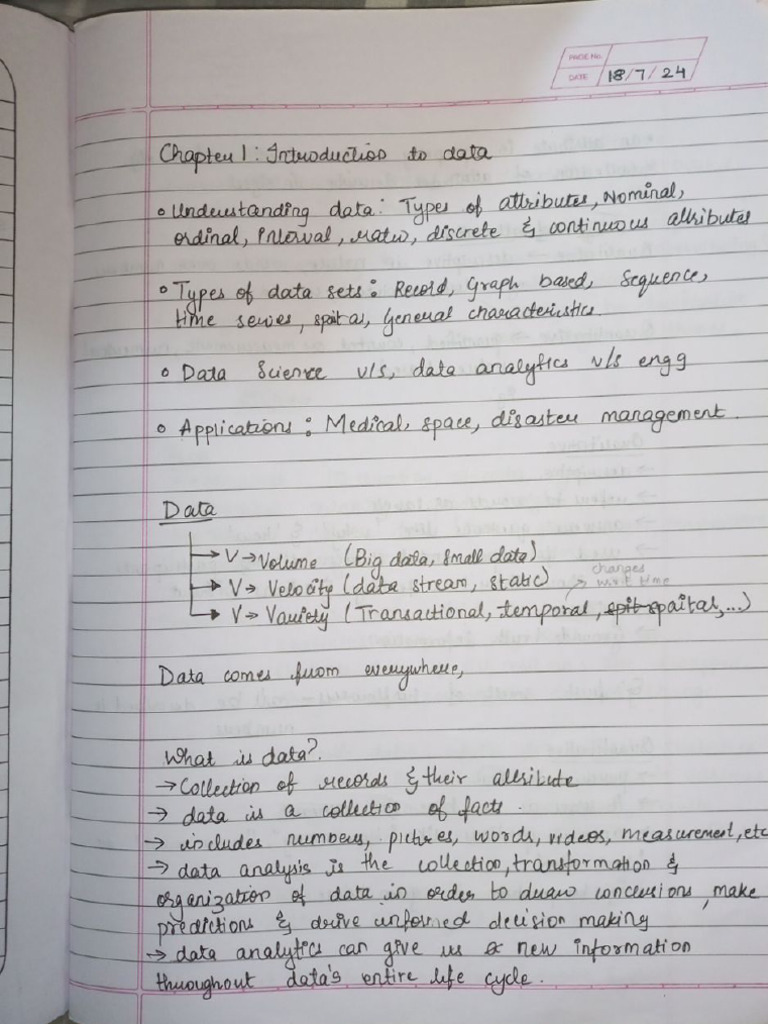 PAGE No.
DATE 18/7/24
Chapter 1: Introduction to data
• Understanding data: Types of attributes, Nominal,
ordinal, interval, ratio, discrete & continuous attributes
• Types of data sets: Record, Graph based, Sequence,
time series, spaital, General characteristics.
• Data Science v/s, data analytics v/s engg
• Applications: Medical, space, disaster management.
Data
→ V → Volume (Big data, small data)
changes
wrt time
→ V → Velocity (data stream, static)
→ V → Variety (Transactional, temporal, spit spaital,...)
Data comes from everywhere,
What is data?.
→ Collection of records & their attribute
→ data is a collection of facts.
→ includes numbers, pictures, words, videos, measurement, etc
→ data analysis is the collection, transformation &
organization of data in order to draw conclusions, make
predictions & drive informed decision making
→ data analytics can give us new information
throughout data's entire life cycle.